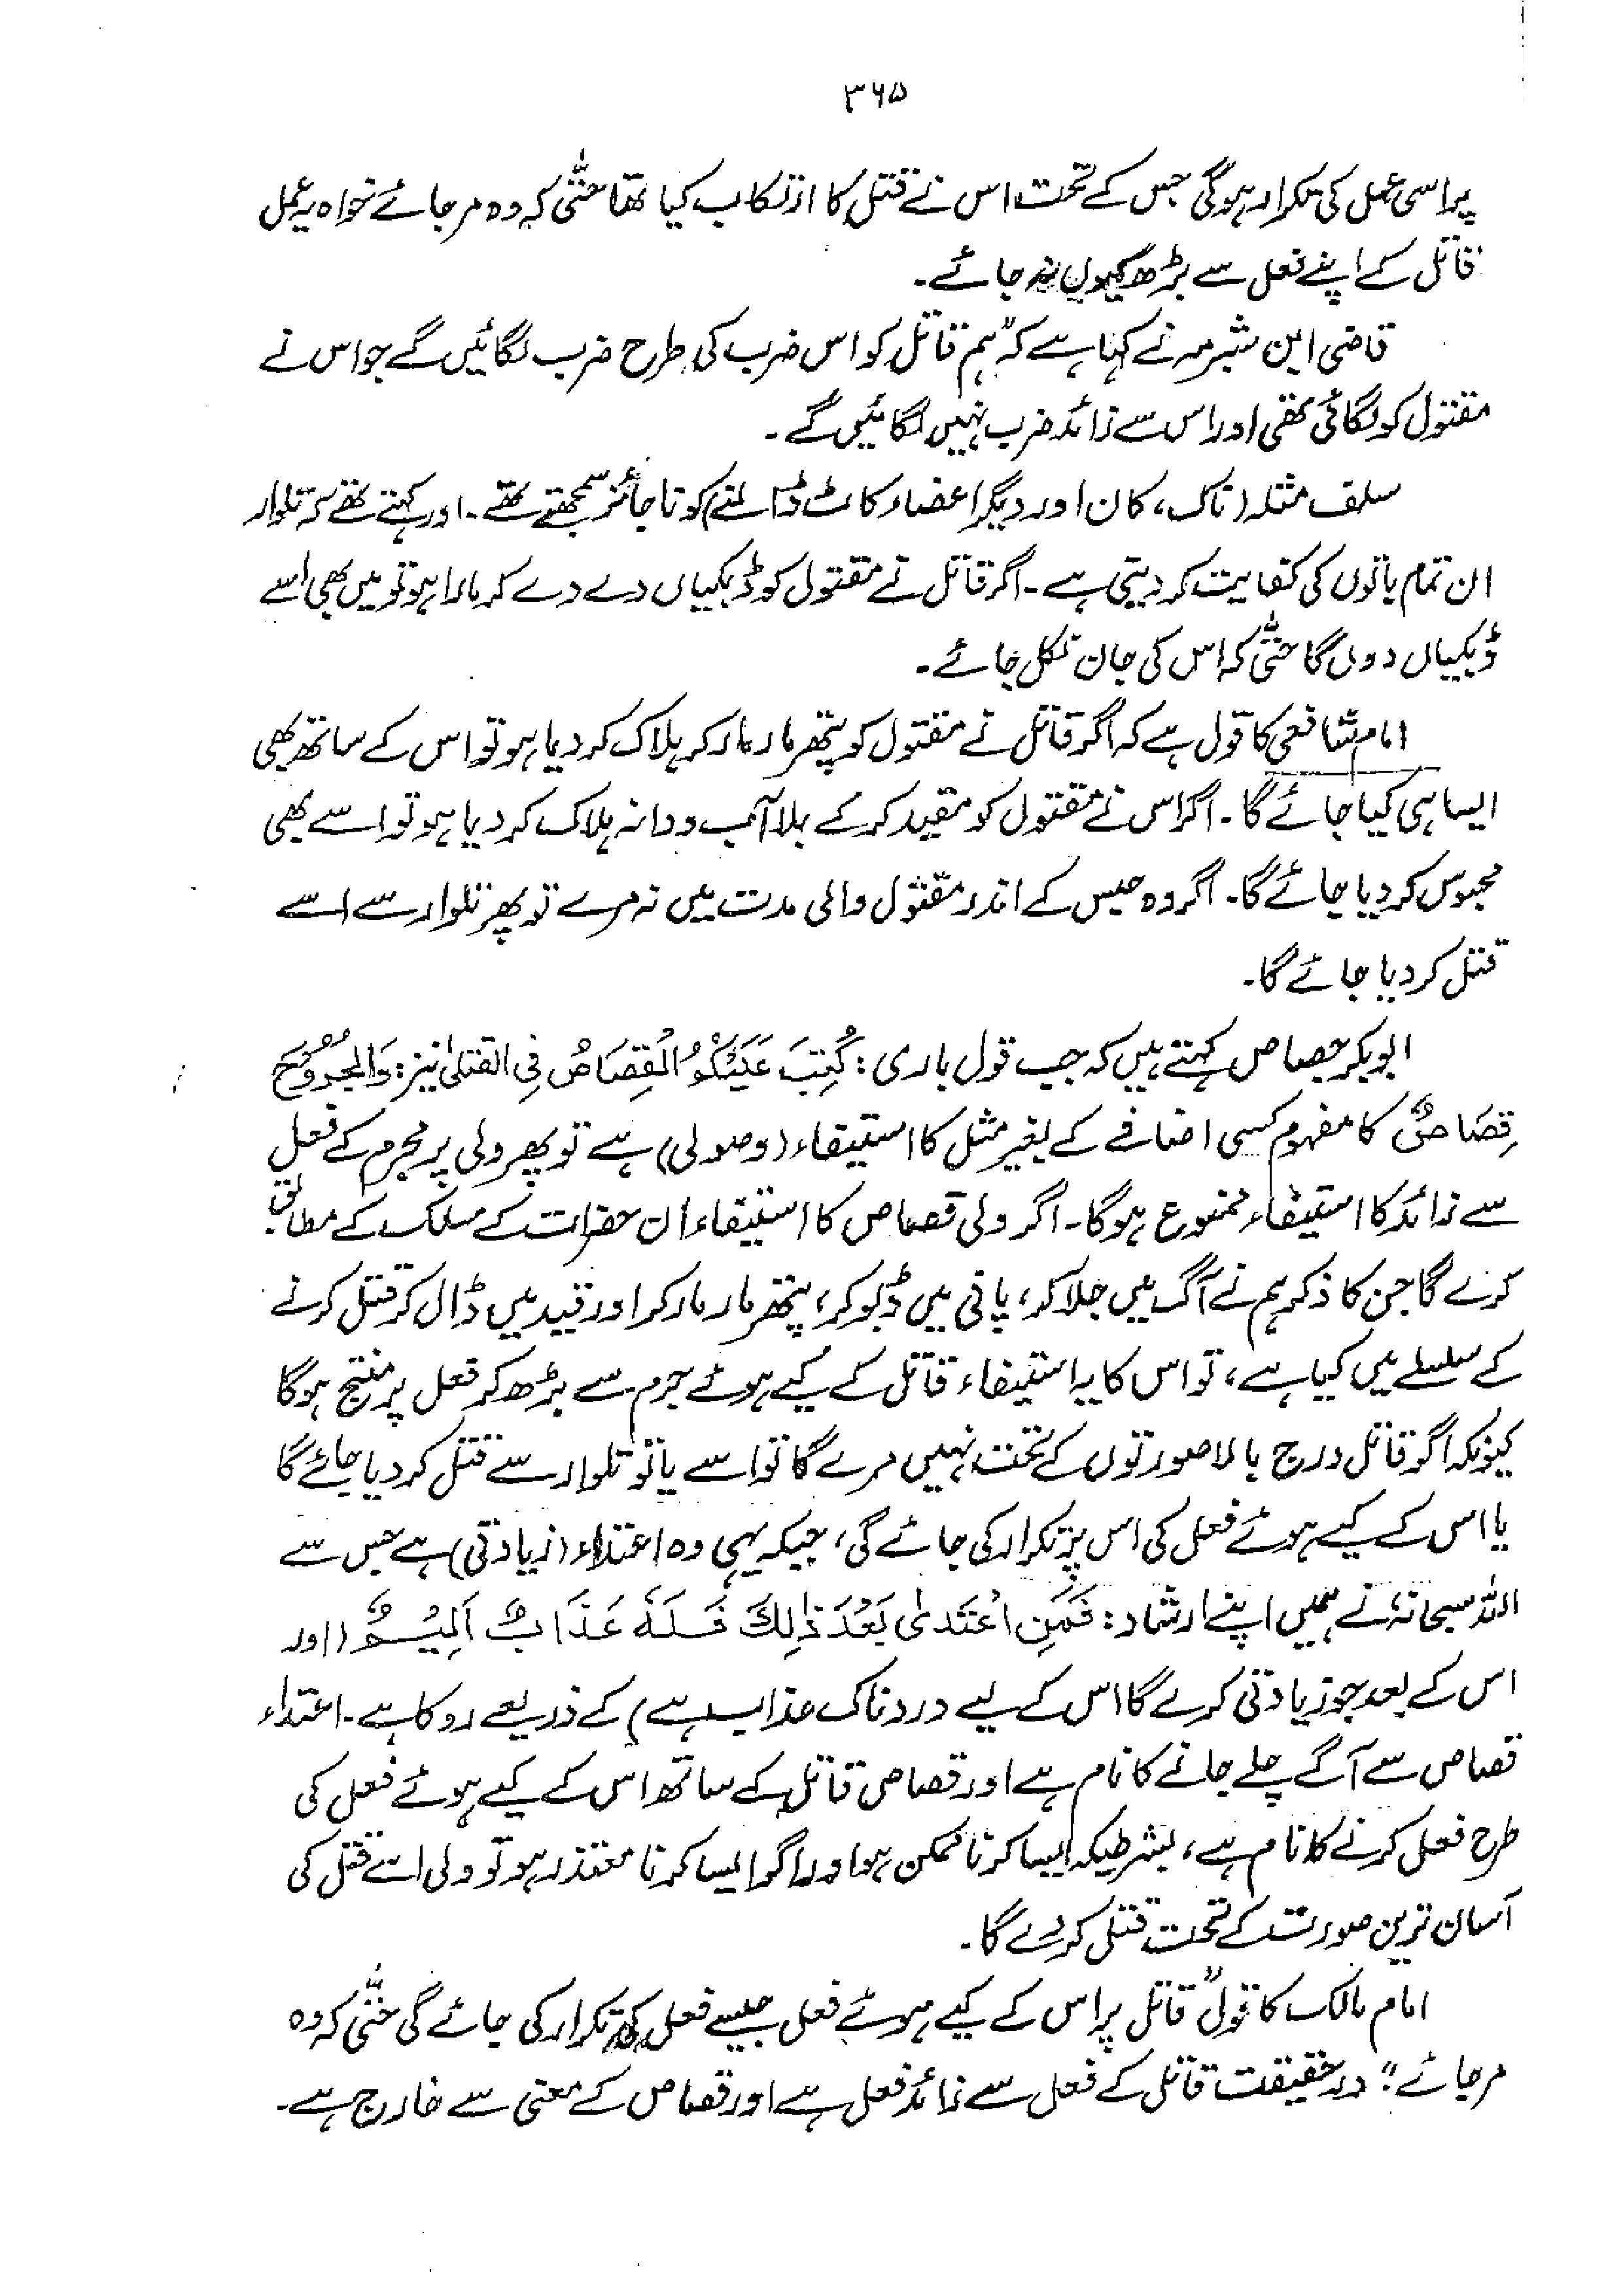 ۳۶۵
پر اسی عمل کی تکرار ہوگی جس کے تحت اس نے قتل کا ارتکاب کیا تھا حتّٰی کہ وہ مر جائے خواہ یہ عمل
قاتل کے اپنے فعل سے بڑھ کیوں نہ جائے۔
قاضی ابن شبرمہ نے کہا ہے کہ "ہم قاتل کو اس ضرب کی طرح ضرب لگائیں گے جو اس نے
مقتول کو لگائی تھی اور اس سے زائد ضرب نہیں لگائیں گے۔
سلف مثلہ (ناک، کان اور دیگر اعضاء کاٹ ڈالنے) کو ناجائز سمجھتے تھے۔ اور کہتے تھے کہ تلوار
ان تمام باتوں کی کفایت کر دیتی ہے۔ اگر قاتل نے مقتول کو ڈبکیاں دے دے کر مارا ہو تو میں بھی اسے
ڈبکیاں دوں گا حتّٰی کہ اس کی جان نکل جائے۔
امام شافعی کا قول ہے کہ اگر قاتل نے مقتول کو پتھر مار مار کر ہلاک کر دیا ہو تو اس کے ساتھ بھی
ایسا ہی کیا جائے گا۔ اگر اس نے مقتول کو مقید کر کے بلا آب و دانہ ہلاک کر دیا ہو تو اسے بھی
محبوس کر دیا جائے گا۔ اگر وہ حبس کے اندر مقتول والی مدت میں نہ مرے تو پھر تلوار سے اسے
قتل کر دیا جائے گا۔
ابوبکر جصاص کہتے ہیں کہ جب قول باری: كُتِبَ عَلَيْكُمُ الْقِصَاصُ فِي القتلٰى نیز: وَالْجُرُوْحَ
قِصَاصٌ کا مفہوم کسی اضافے کے بغیر مثل کا استیفاء (وصولی) ہے تو پھر ولی پر مجرم کے فعل
سے زائد کا استیفاء ممنوع ہوگا۔ اگر ولی قصاص کا استیفاء ان حضرات کے مسلک کے مطابق
کرے گا جن کا ذکر ہم نے آگ میں جلا کر، پانی میں ڈبو کر، پتھر مار مار کر اور قید میں ڈال کر قتل کرنے
کے سلسلے میں کیا ہے، تو اس کا یہ استیفاء قاتل کے کیے ہوئے جرم سے بڑھ کر فعل پر منتج ہوگا
کیونکہ اگر قاتل درج بالا صورتوں کے تحت نہیں مرے گا تو اسے یا تو تلوار سے قتل کر دیا جائے گا
یا اس کے کیے ہوئے فعل کی اس پر تکرار کی جائے گی، جبکہ یہی وہ اعتداء (زیادتی) ہے جس سے
اللہ سبحانہٗ نے ہمیں اپنے ارشاد: فَمَنِ اعْتَدٰى بَعْدَ ذٰلِكَ فَلَهٗ عَذَابٌ اَلِيْمٌ (اور
اس کے بعد جو زیادتی کرے گا اس کے لیے دردناک عذاب ہے) کے ذریعے روکا ہے۔ اعتداء
قصاص سے آگے چلے جانے کا نام ہے اور قصاص قاتل کے ساتھ اس کے کیے ہوئے فعل کی
طرح فعل کرنے کا نام ہے، بشرطیکہ ایسا کرنا ممکن ہو اور اگر ایسا کرنا متعذر ہو تو ولی اسے قتل کی
آسان ترین صورت کے تحت قتل کر دے گا۔
امام مالک کا قول "قاتل پر اس کے کیے ہوئے فعل جیسے فعل کی تکرار کی جائے گی حتّٰی کہ وہ
مر جائے" درحقیقت قاتل کے فعل سے زائد فعل ہے اور قصاص کے معنی سے خارج ہے۔